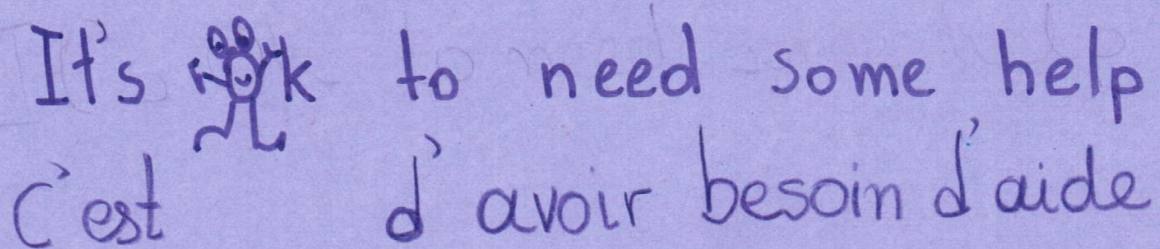 It's ok to need some help
c'est d'avoir besoin d'aide